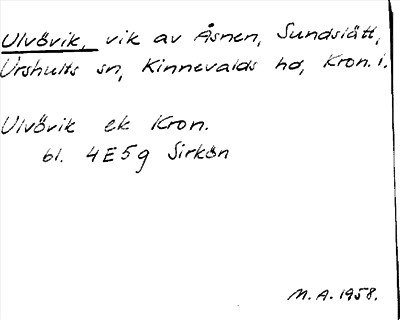 Ulvövik, vik av Åsnen, Sundslätt,
Urshults sn, Kinnevalds hd, Kron. l.
Ulvövik ek Kron.
bl. 4E5g Sirkön
M.A. 1958.